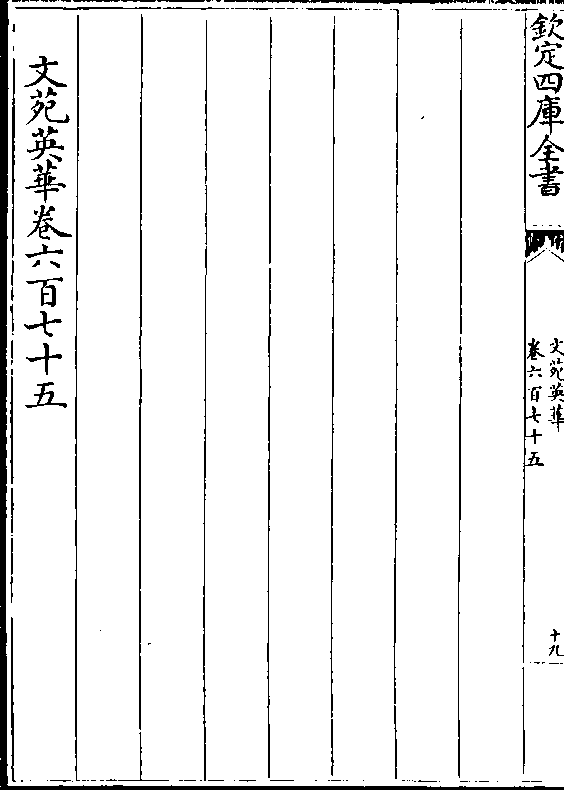 欽定四庫全書
文苑英華
卷六百七十五
十九
文苑英華卷六百七十五